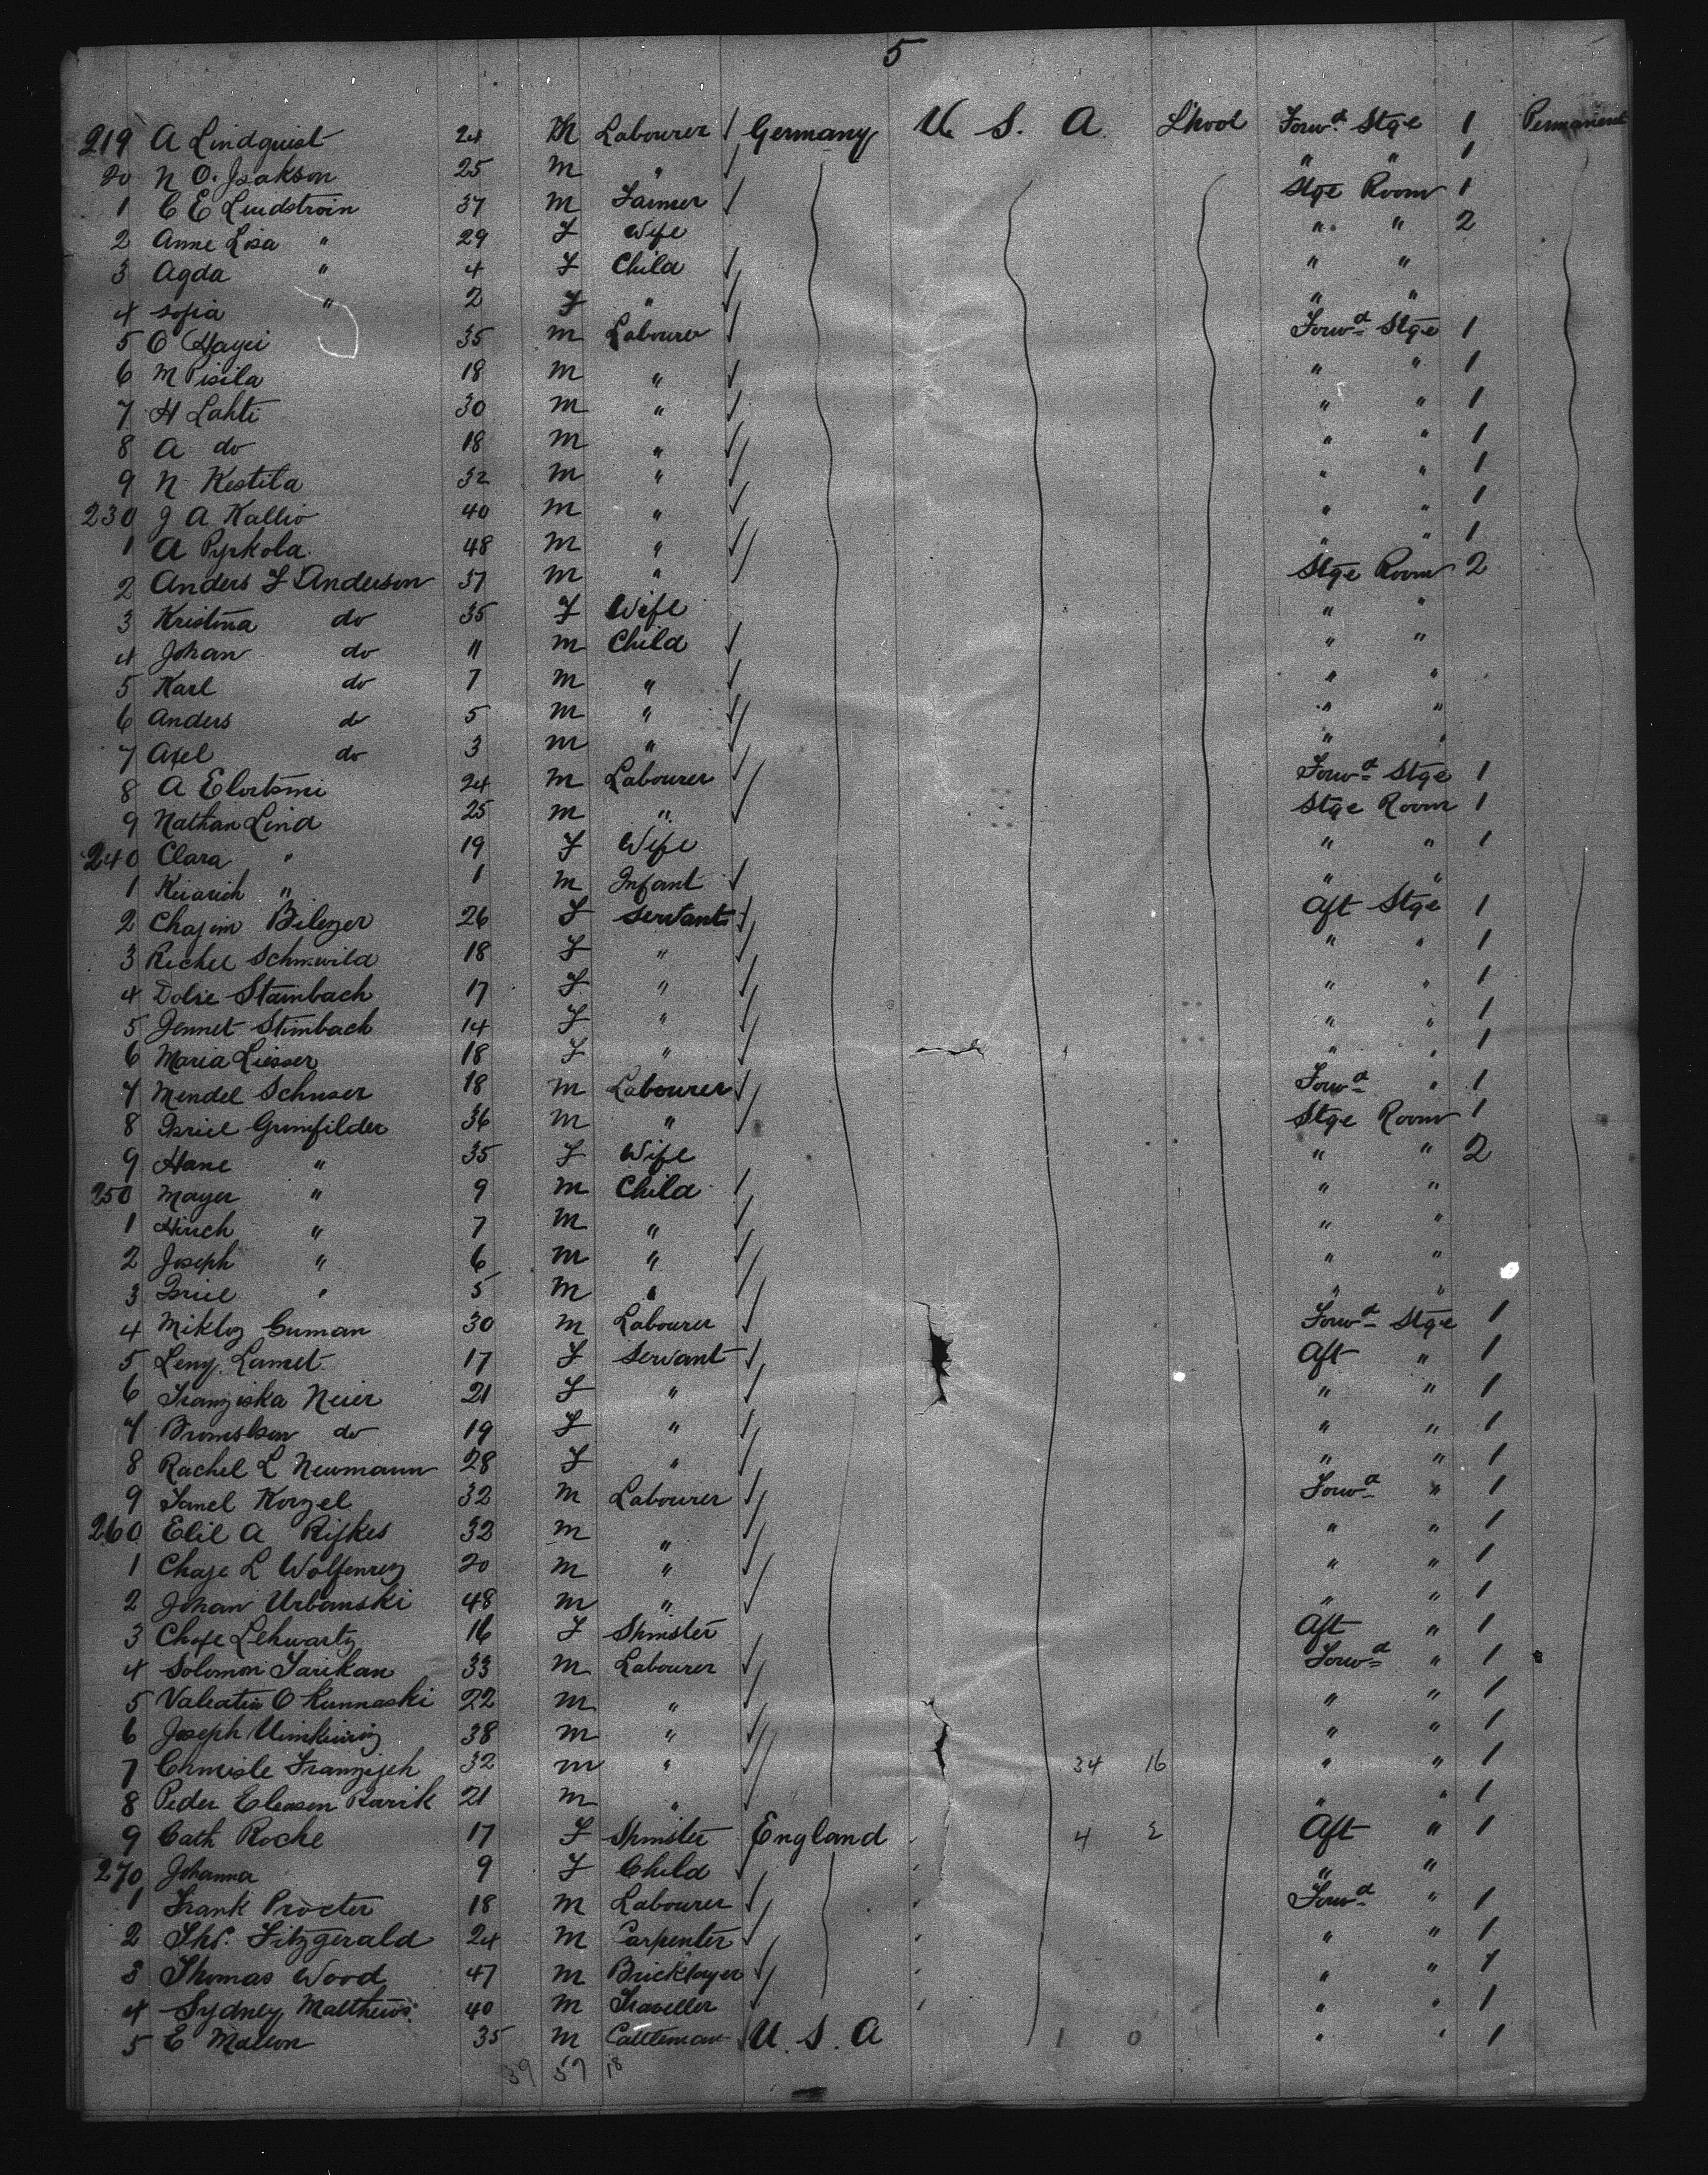 5
219 A Lindquist 24 M Labourer Germany U. S. A. L'pool Forwd Stge 1 Permanent
20 N O. Isakson 25 M " " " 1
1 C E Lindstrom 37 M Farmer Stge Room 1
2 Anne Lisa " 29 F Wife " " 2
3 Agda " 4 F Child " "
4 Sofia " 2 F " " "
5 O 35 M Labourer Forwd Stge 1
6 M Pisila 18 M " " " 1
7 H Lahti 30 M " " " 1
8 A do 18 M " " " 1
9 N Kestila 32 M " " " 1
230 J A Kallio 40 M " " " 1
1 A Pyrkola 48 M " " " 1
2 Anders F Anderson 37 M " Stge Room 2
3 Kristina do 35 F Wife " "
4 Johan do 11 M Child " "
5 Karl do 7 M " " "
6 Anders do 5 M " " "
7 Axel do 3 M " " "
8 A 24 M Labourer Forwd Stge 1
9 Nathan Lind 25 M " Stge Room 1
240 Clara " 19 F Wife " " 1
1 " 1 M Infant " "
2 Chajem 26 F Servant Aft Stge 1
3 Rechel 18 F " " " 1
4 Stambach 17 F " " " 1
5 Jennet Stimbach 14 F " " " 1
6 Maria Liesser 18 F " " " 1
7 Mendel Schuser 18 M Labourer Forwd " 1
8 Isriel Grunfilder 36 M " Stge Room 1
9 Hane " 35 F Wife " " 2
250 Mayer " 9 M Child " "
1 Hirsch " 7 M " " "
2 Joseph " 6 M " " "
3 Isriel " 5 M " " "
4 Mikloz Guman 30 M Labourer Forwd Stge 1
5 Leny Lamet 17 F Servant Aft " 1
6 Franziska Neier 21 F " " " 1
7 do 19 F " " " 1
8 Rachel L Neumann 28 F " " " 1
9 Korzel 32 M Labourer Forwd " 1
260 Elie A Rifkes 32 M " " " 1
1 Chaje L 20 M " " " 1
2 Johan Urbanski 48 M " " " 1
3 16 F Spinster Aft " 1
4 Solomon Tarikan 33 M Labourer Forwd " 1
5 22 M " " " 1
6 Joseph 38 M " " " 1
7 32 M " 34 16 " " 1
8 Peder 21 M " " " 1
9 Cath Roche 17 F Spinster England 4 2 Aft " 1
270 Johanna 9 F Child " "
1 Frank Procter 18 M Labourer Forwd " 1
2 Thos. Fitzgerald 24 M Carpenter " " 1
3 Thomas Wood 47 M Bricklayer " " 1
4 Sydney Matthews 40 M Traveller " " 1
5 E Mallon 35 M Cattleman U. S. A 1 0 " " 1
39 57 18